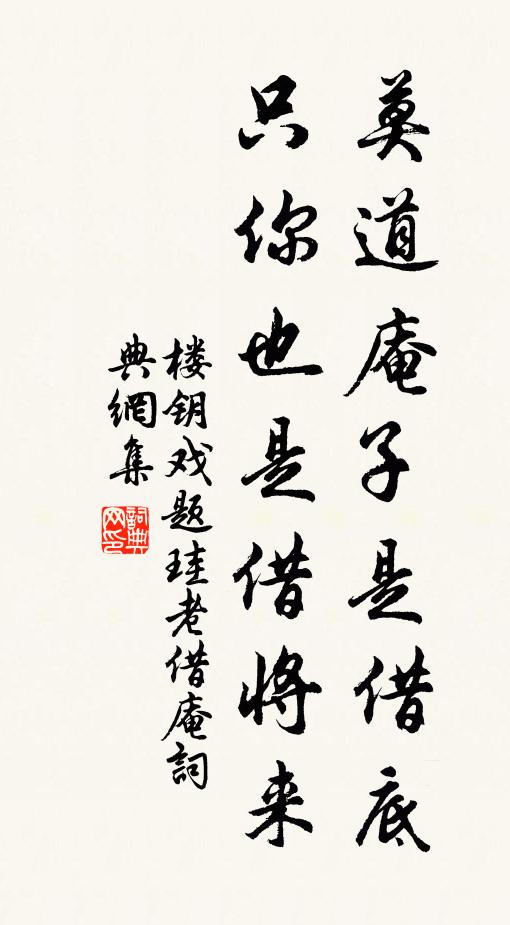 莫道庵子是借底
只你也是借将来
楼钥戏题珪老借庵词
典網集
詞典网印